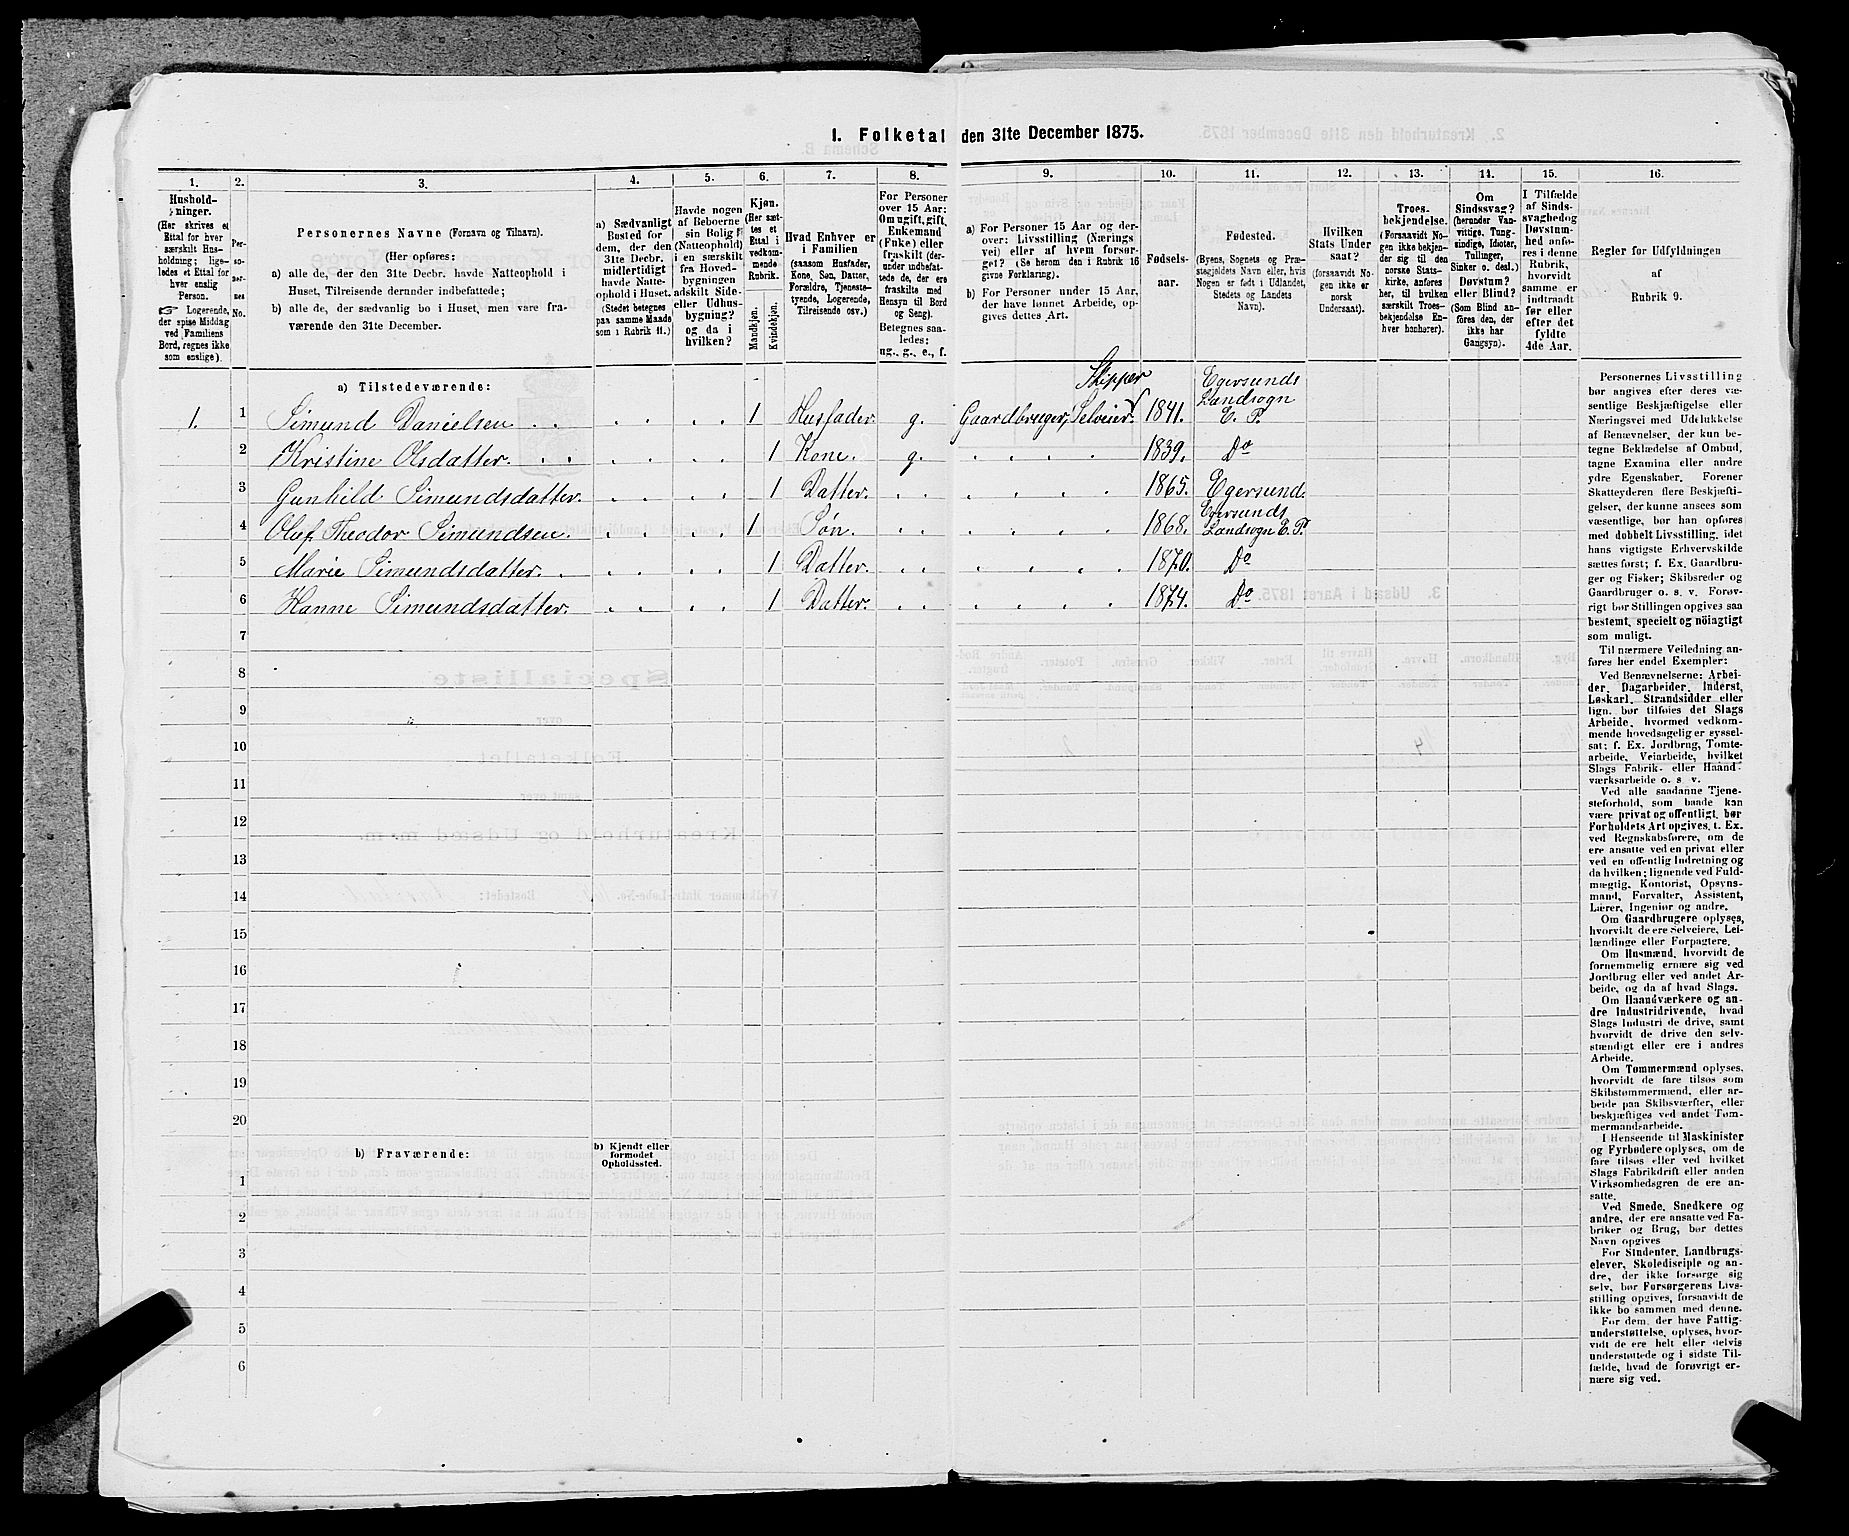 1. Folketal den 31te December 1875.
1. 2. 3. 4. 5. 6. 7. 8. 9. 10. 11. 12. 13. 14. 15. 16.
Hushold-
ninger.
(Her skrives et
Ettal for hver
særskilt Hus-
holdning; lige-
ledes et Ettal for
hver enslig
Person.
☞ Logerende,
der spise Middag
ved Familiens
Bord, regnes ikke
som enslige).
Per-
so-
ner-
nes
No.
Personernes Navne (Fornavn og Tilnavn).
(Her opføres:
a) alle de, der den 31te Decbr. havde Natteophold i
Huset, Tilreisende derunder indbefattede;
b) alle de, der sædvanlig bo i Huset, men vare fra-
værende den 31te December.
a) Sædvanligt
Bosted for
dem, der den
31te Decbr.
midlertidigt
havde Natte-
ophold i Huset.
(Stedet betegnes
paa samme Maade
som i Rubrik 11.)
Havde nogen
af Beboerne
sin Bolig
(Natteophold)
i en særskilt
fra Hoved-
bygningen
adskilt Side-
eller Udhus-
bygning?
og da i
hvilken?
Kjøn.
(Her sæt-
tes et
Ettal i
vedkom-
mende
Rubrik.
Mandkjøn.
Kvindekjøn.
Hvad Enhver er
i Familien
(saasom Husfader,
Kone, Søn, Datter,
Forældre, Tjeneste-
tyende, Logerende,
Tilreisende osv.)
For Personer
over 15 Aar:
Om ugift, gift,
Enkemand
(Enke) eller
fraskilt (der-
under indbefat-
tede de, der ere
fraskilte med
Hensyn til Bord
og Seng).
Betegnes saa-
ledes:
ug., g., e., f.
a) For Personer 15 Aar og der-
over: Livsstilling (Nærings
vei) eller af hvem forsør-
get? (Se herom den i Rubrik 16
givne Forklaring).
b) For Personer under 15 Aar,
der have lønnet Arbeide, op-
gives dettes Art.
Fødsels-
aar.
Fødested.
(Byens, Sognets og Præ-
stegjeldets Navn eller, hvis
Nogen er født i Udlandet,
Stedets og Landets
Navn).
Hvilken
Stats Under
saat?
(forsaavidt No-
gen ikke er
norsk
Undersaat).
Troes-
bekjendelse.
(Forsaavidt No-
gen ikke bekjen-
der sig til den
norske Stats-
kirke, anføres
her, til hvilken
særskilt Troes-
bekjendelse En-
hver henhører).
Om
Sindssvag?
(herunder Van-
vittige, Tung-
sindige, Idioter,
Tullinger,
Sinker o. desl.)
Døvstum?
eller Blind?
(Som Blind an-
føres den, der
ikke har
Gangsyn).
I Tilfælde
af Sinds-
svaghed og
Døvstum-
hed anfø-
res i denne
Rubrik,
hvorvidt
samme er
indtraadt
før eller
efter det
fyldte
4de Aar.
Regler for Udfyldningen
af
Rubrik 9.
a) Tilstedeværende:
1. 1 Simund Danielsen 1 Husfader g. Gaardbruger, Selveier. Skipper 1841. Egersunds Landsogn E. P.
2 Kristine Olsdatter. 1 Kone g. 1839. Do
3 Gunhild Simundsdatter. 1 Datter. 1865. Egersund.
4 Oluf Theodor Simundsen. 1 Søn. 1868. Egersunds Landsogn E. P.
5 Marie Simundsdatter. 1 Datter. 1870. Do
6 Hanne Simundsdatter. 1 Datter. 1874. Do
7
8
9
10
11
12
13
14
15
16
17
18
19
20
b) Fraværende:
b) Kjendt eller
formodet
Opholdssted.
1
2
3
4
5
6
Personernes Livsstilling
bør angives efter deres væ-
sentlige Beskjæftigelse eller
Næringsvei med Udelukkelse
af Benævnelser, der kun be-
tegne Beklædelse af Ombud,
tagne Examina eller andre
ydre Egenskaber. Forener
Skatteyderen flere Beskjæfti-
gelser, der kunne ansees som
væsentlige, bør han opføres
med dobbelt Livsstilling, idet
hans vigtigste Erhvervskilde
sættes først; f. Ex. Gaardbru-
ger og Fisker; Skibsreder og
Gaardbruger o. s. v. Forøv-
rigt bør Stillingen opgives saa
bestemt, specielt og nöiagtigt
som muligt.
Til nærmere Veiledning an-
føres her endel Exempler:
Ved Benævnelserne: Arbei-
der, Dagarbeider, Inderst,
Løskarl, Strandsidder eller
lign. bør tilføies det Slags
Arbeide, hvormed vedkom-
mende hovedsagelig er syssel-
sat; f. Ex. Jordbrug, Tomte-
arbeide, Veiarbeide, hvilket
Slags Fabrik- eller Haand-
værksarbeide o. s v.
Ved alle saadanne Tjene-
steforhold, som baade kan
være privat og offentligt, bør
Forholdets Art opgives, t. Ex.
ved Regnskabsførere, om de
ere ansatte ved en privat eller
ved en offentlig Indretning og
da hvilken; lignende ved Fuld-
mægtig, Kontorist, Opsyns-
mand, Forvalter, Assistent,
Lærer, Ingeniør og andre.
Om Gaardbrugere oplyses,
hvorvidt de ere Selveiere, Lei-
lændinge eller Forpagtere.
Om Husmænd, hvorvidt de
fornemmelig ernære sig ved
Jordbrug eller ved andet Ar-
beide, og da af hvad Slags.
Om Haandværkere og an-
dre Industridrivende, hvad
Slags Industri de drive, samt
hvorvidt de drive den selv-
stændigt eller ere i andres
Arbeide.
Om Tømmermænd oplyses,
hvorvidt de fare tilsøs som
Skibstømmermænd, eller ar-
beide paa Skibsværfter, eller
beskjæftiges ved andet Tøm-
mermandsarbeide.
I Henseende til Maskinister
og Fyrbødere oplyses, om de
fare tilsøs eller ved hvilket
Slags Fabrikdrift eller anden
Virksomhedsgren de ere an-
satte.
Ved Smede, Snedkere og
andre, der ere ansatte ved Fa-
briker og Brug, bør dettes
Navn opgives
For Studenter, Landbrugs-
elever, Skoledisciple og an-
dre, der ikke forsørge sig
selv, bør Forsørgerens Livs-
stilling opgives, forsaavidt de
ikke bo sammen med denne.
For dem, der have Fattig-
understøttelse, oplyses, hvor-
vidt de ere helt eller delvis
understøttede og i sidste Til-
fælde, hvad de forøvrigt er-
nære sig ved.